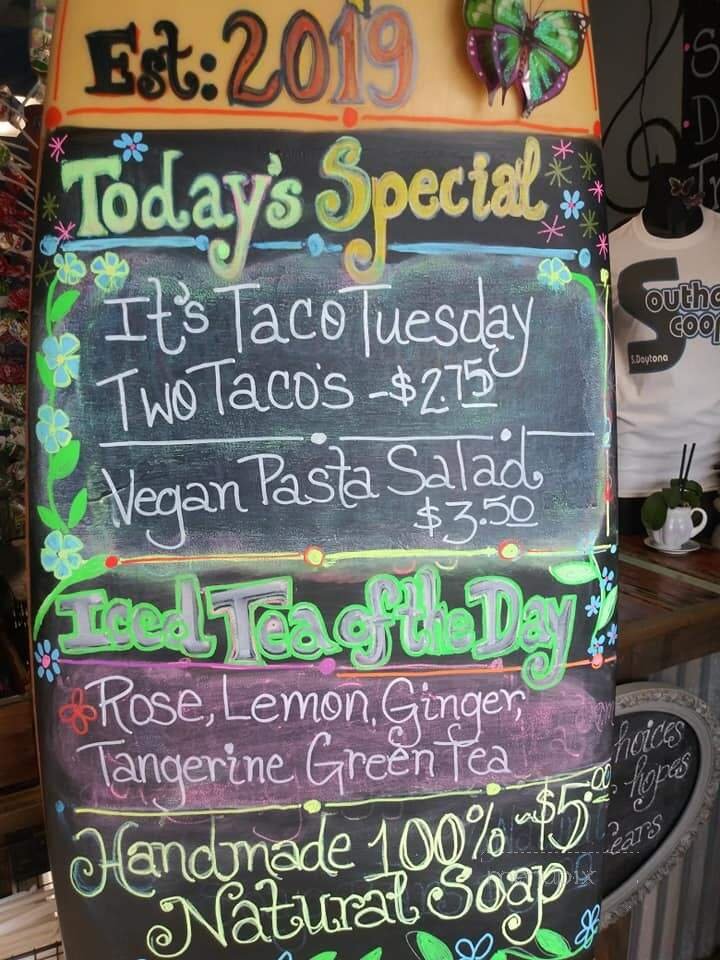 Est: 2019
Today's Special
It's Taco Tuesday
Two Taco's - $2.75
Vegan Pasta Salad
$3.50
Iced Tea of the Day
Rose, Lemon, Ginger,
Tangerine Green Tea
Handmade 100% ~$5.00
Natural Soap
S.Daytona
hoices
hopes
ears